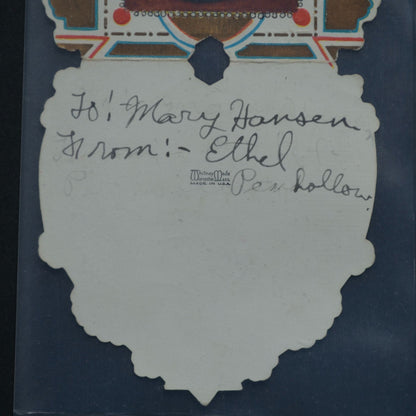 To! Mary Hansen
From:- Ethel
Whitney Made
Worcester, Mass.
MADE IN U.S.A.
Penhollow.